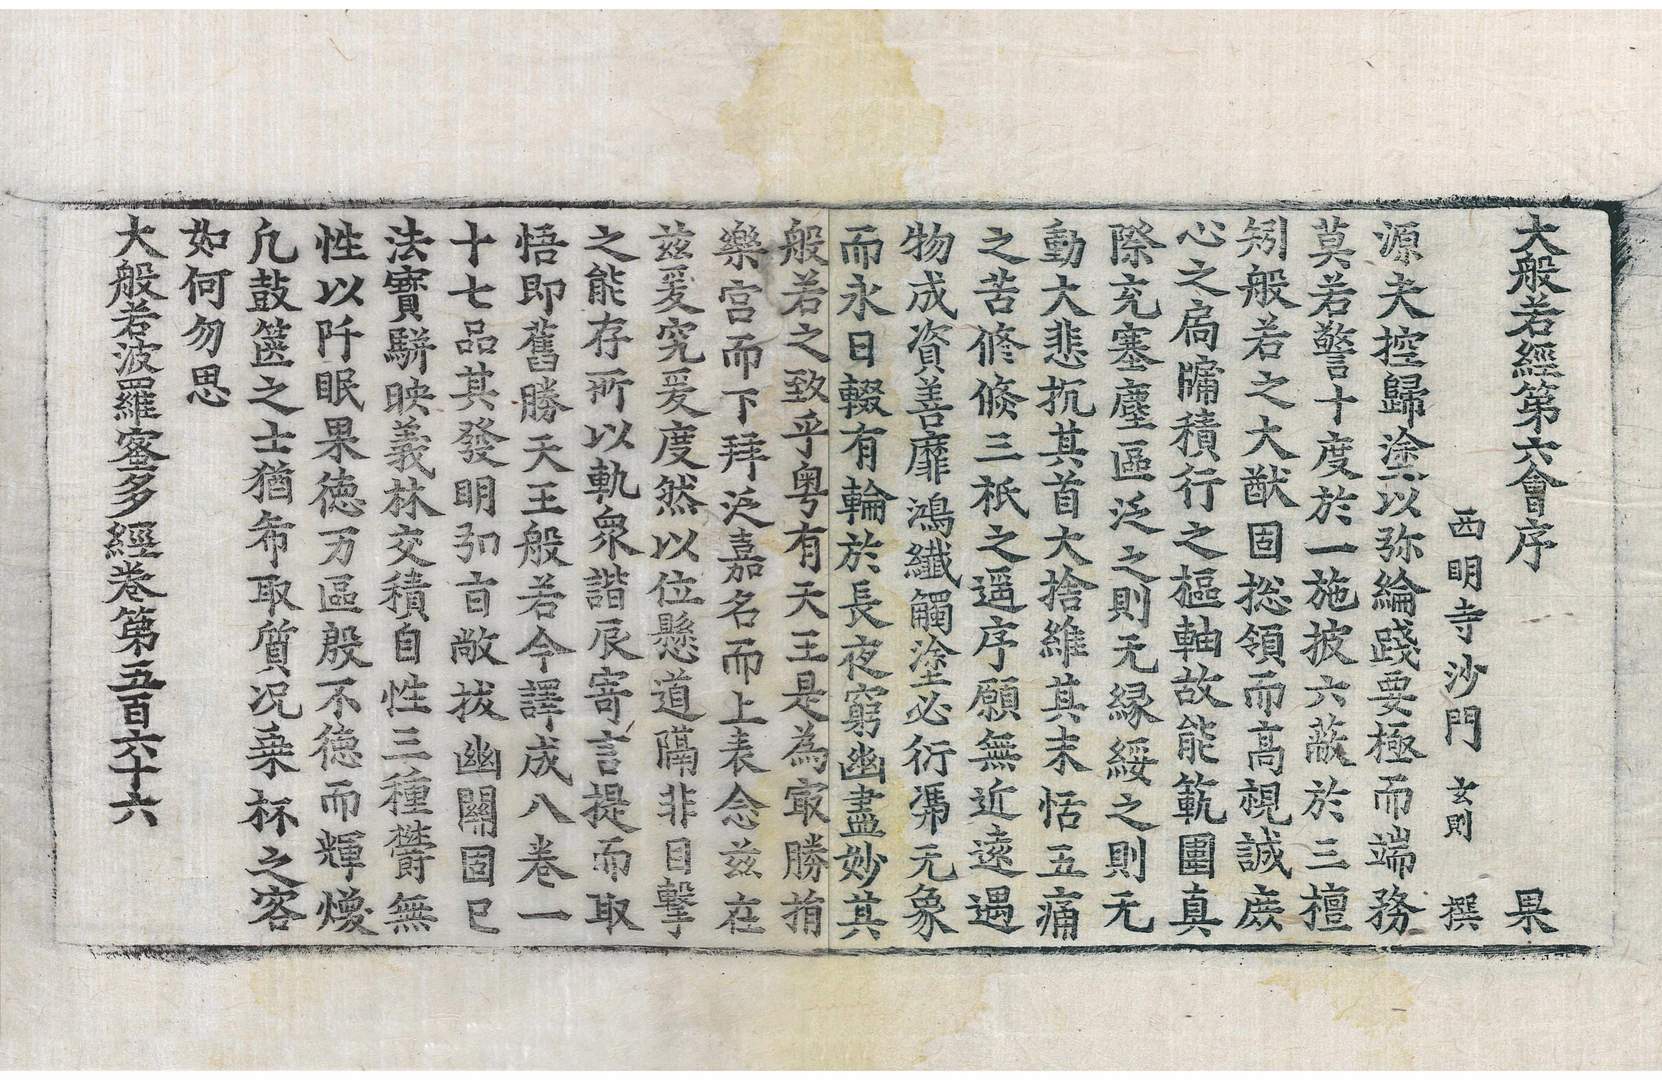 大般若經第六會序 果
西明寺沙門 玄則 撰
源夫控歸塗以弥綸踐要極而端務
莫若警十度於一施披六蔽於三檀
矧般若之大猷固揔領而高視誠庻
心之扄牖積行之樞軸故能範圍真
際充塞塵區泛之則无縁綏之則无
動大悲抗其首大捨維其末恬五痛
之苦修倏三祇之遥序願無近遠遇
物成資善靡鴻纖觸塗必衍馮无象
而永日輟有輪於長夜窮幽盡妙其
般若之致乎粤有天王是為㝡勝捐
樂宫而下拜泛嘉名而上表念兹在
兹爰究爰度然以位懸道隔非目擊
之能存所以軌衆諧辰寄言提而取
悟即舊勝天王般若今譯成八卷一
十七品其發明弘㫖敞拔幽關固已
法寶駢映義林交積自性三種欝無
性以阡眠果徳万區殷不徳而輝煥
凡鼓篋之士猶希取質况乗杯之客
如何勿思
大般若波羅蜜多經卷第五百六十六